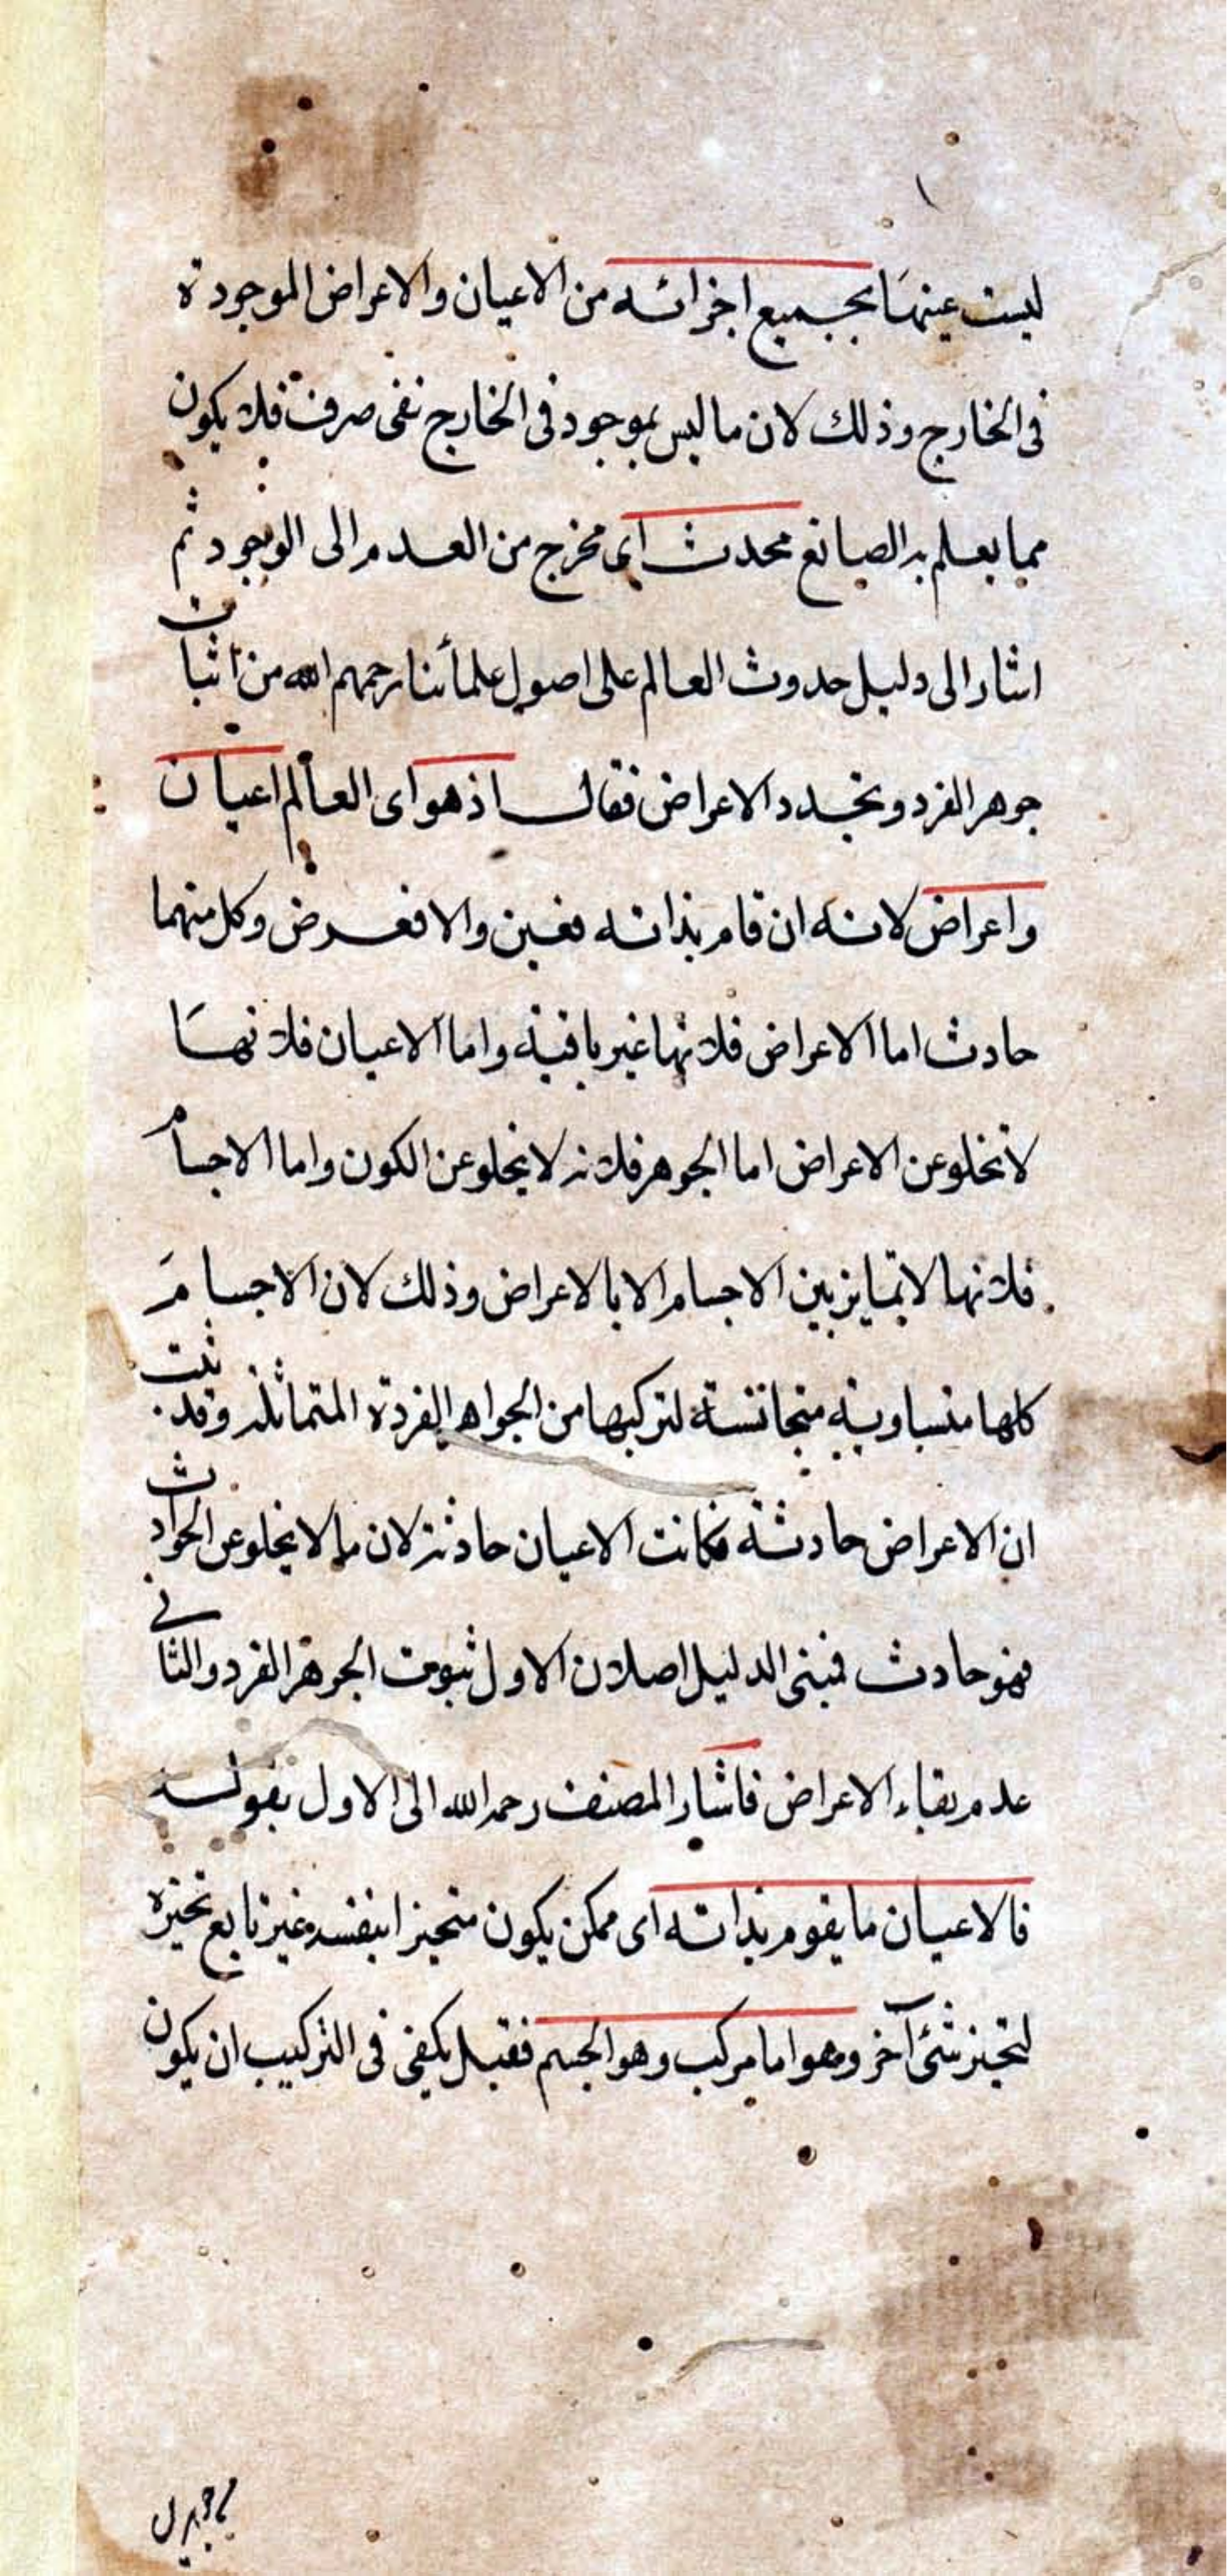 ليست عينها بجميع اجزائه من الاعيان والاعراض الموجودة
فى الخارج وذلك لان ما ليس بموجود فى الخارج نفى صرف فلا يكون
مما يعلم به الصانع محدث اى مخرج من العدم الى الوجود ثم
اشار الى دليل حدوث العالم على اصول علمائنا رحمهم الله من اثبات
جوهر الفرد وتجدد الاعراض فقال اذ هو اى العالم اعيان
واعراض لانه ان قام بذاته فعين والا فعرض وكل منهما
حادث اما الاعراض فلانها غير باقية واما الاعيان فلانها
لا تخلو عن الاعراض اما الجوهر فلانه لا يخلو عن الكون واما الاجسام
فلانها لا تمايز بين الاجسام الا بالاعراض وذلك لان الاجسام
كلها متساوية متجانسة لتركبها من الجواهر الفردة المتماثلة وقد ثبت
ان الاعراض حادثة فكانت الاعيان حادثة لان ما لا يخلو عن الحوادث
فهو حادث فبنى الدليل اصلان الاول ثبوت الجوهر الفرد والثانى
عدم بقاء الاعراض فاشار المصنف رحمه الله الى الاول بقوله
فالاعيان ما يقوم بذاته اى ممكن يكون متحيزا بنفسه غير تابع تحيزه
لتحيز شئ آخر وهو اما مركب وهو الجسم فقيل يكفى فى التركيب ان يكون